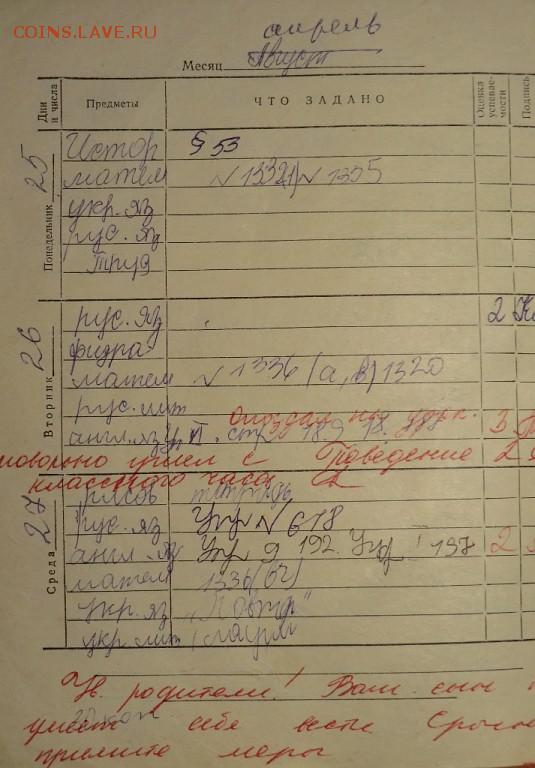 COINS.LAVE.RU
апрель
Месяц Август
Дни и числа Предметы ЧТО ЗАДАНО Оценка успеваемости Подпись
Понедельник 25
Истор § 53
матем № 1332 № 1335
укр. яз
рус. яз
труд
Вторник 26
рус. яз 2
физра
матем № 1336 (а, в) 1320
рус. лит
Опоздал на урок.
англ. яз стр 189 3
уш��л с Поведение 2
классного часа
Среда 27
рисов тетрадь
рус. яз Упр № 618
англ. яз Упр 9 192. Упр 1 197 2
матем 1336
укр. яз
укр. лит
Ув. родители! Ваш сын
умеет себя вести Срочно
примите меры